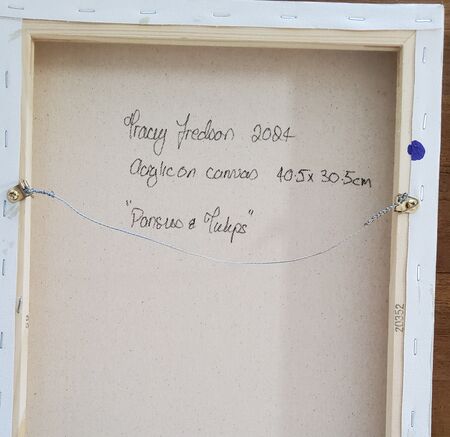 Tracey Fredson 2024
Acrylic on canvas 40.5 x 30.5cm
"Pansies & Tulips"
20352